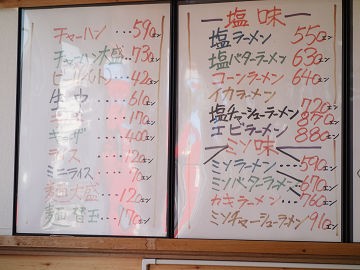 チャーハン…590エン
チャーハン大盛…730エン
ビール(ボトル)…420エン
生ウ…610エン
170エン
ギョーザ…400エン
ライス…120エン
ミニライス…70エン
麺大盛…120エン
麺替玉…170エン
塩味
塩ラーメン 550エン
塩バターラーメン 630エン
コーンラーメン 640エン
イカラーメン 720エン
塩チャーシューラーメン 870エン
エビラーメン 880エン
ミソ味
ミソラーメン…590エン
ミソバターラーメン…670エン
カキラーメン…760エン
ミソチャーシューラーメン…910エン